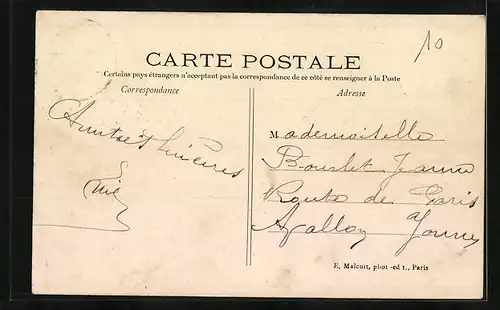 10
CARTE POSTALE
Certains pays étrangers n'acceptant pas la correspondance de ce côté se renseigner à la Poste
Correspondance
Adresse
Amitiés Sincères
Mademoiselle
Bourlet Jeanne
Route de Paris
Avallon Yonne
E. Malcuit, phot-edt., Paris